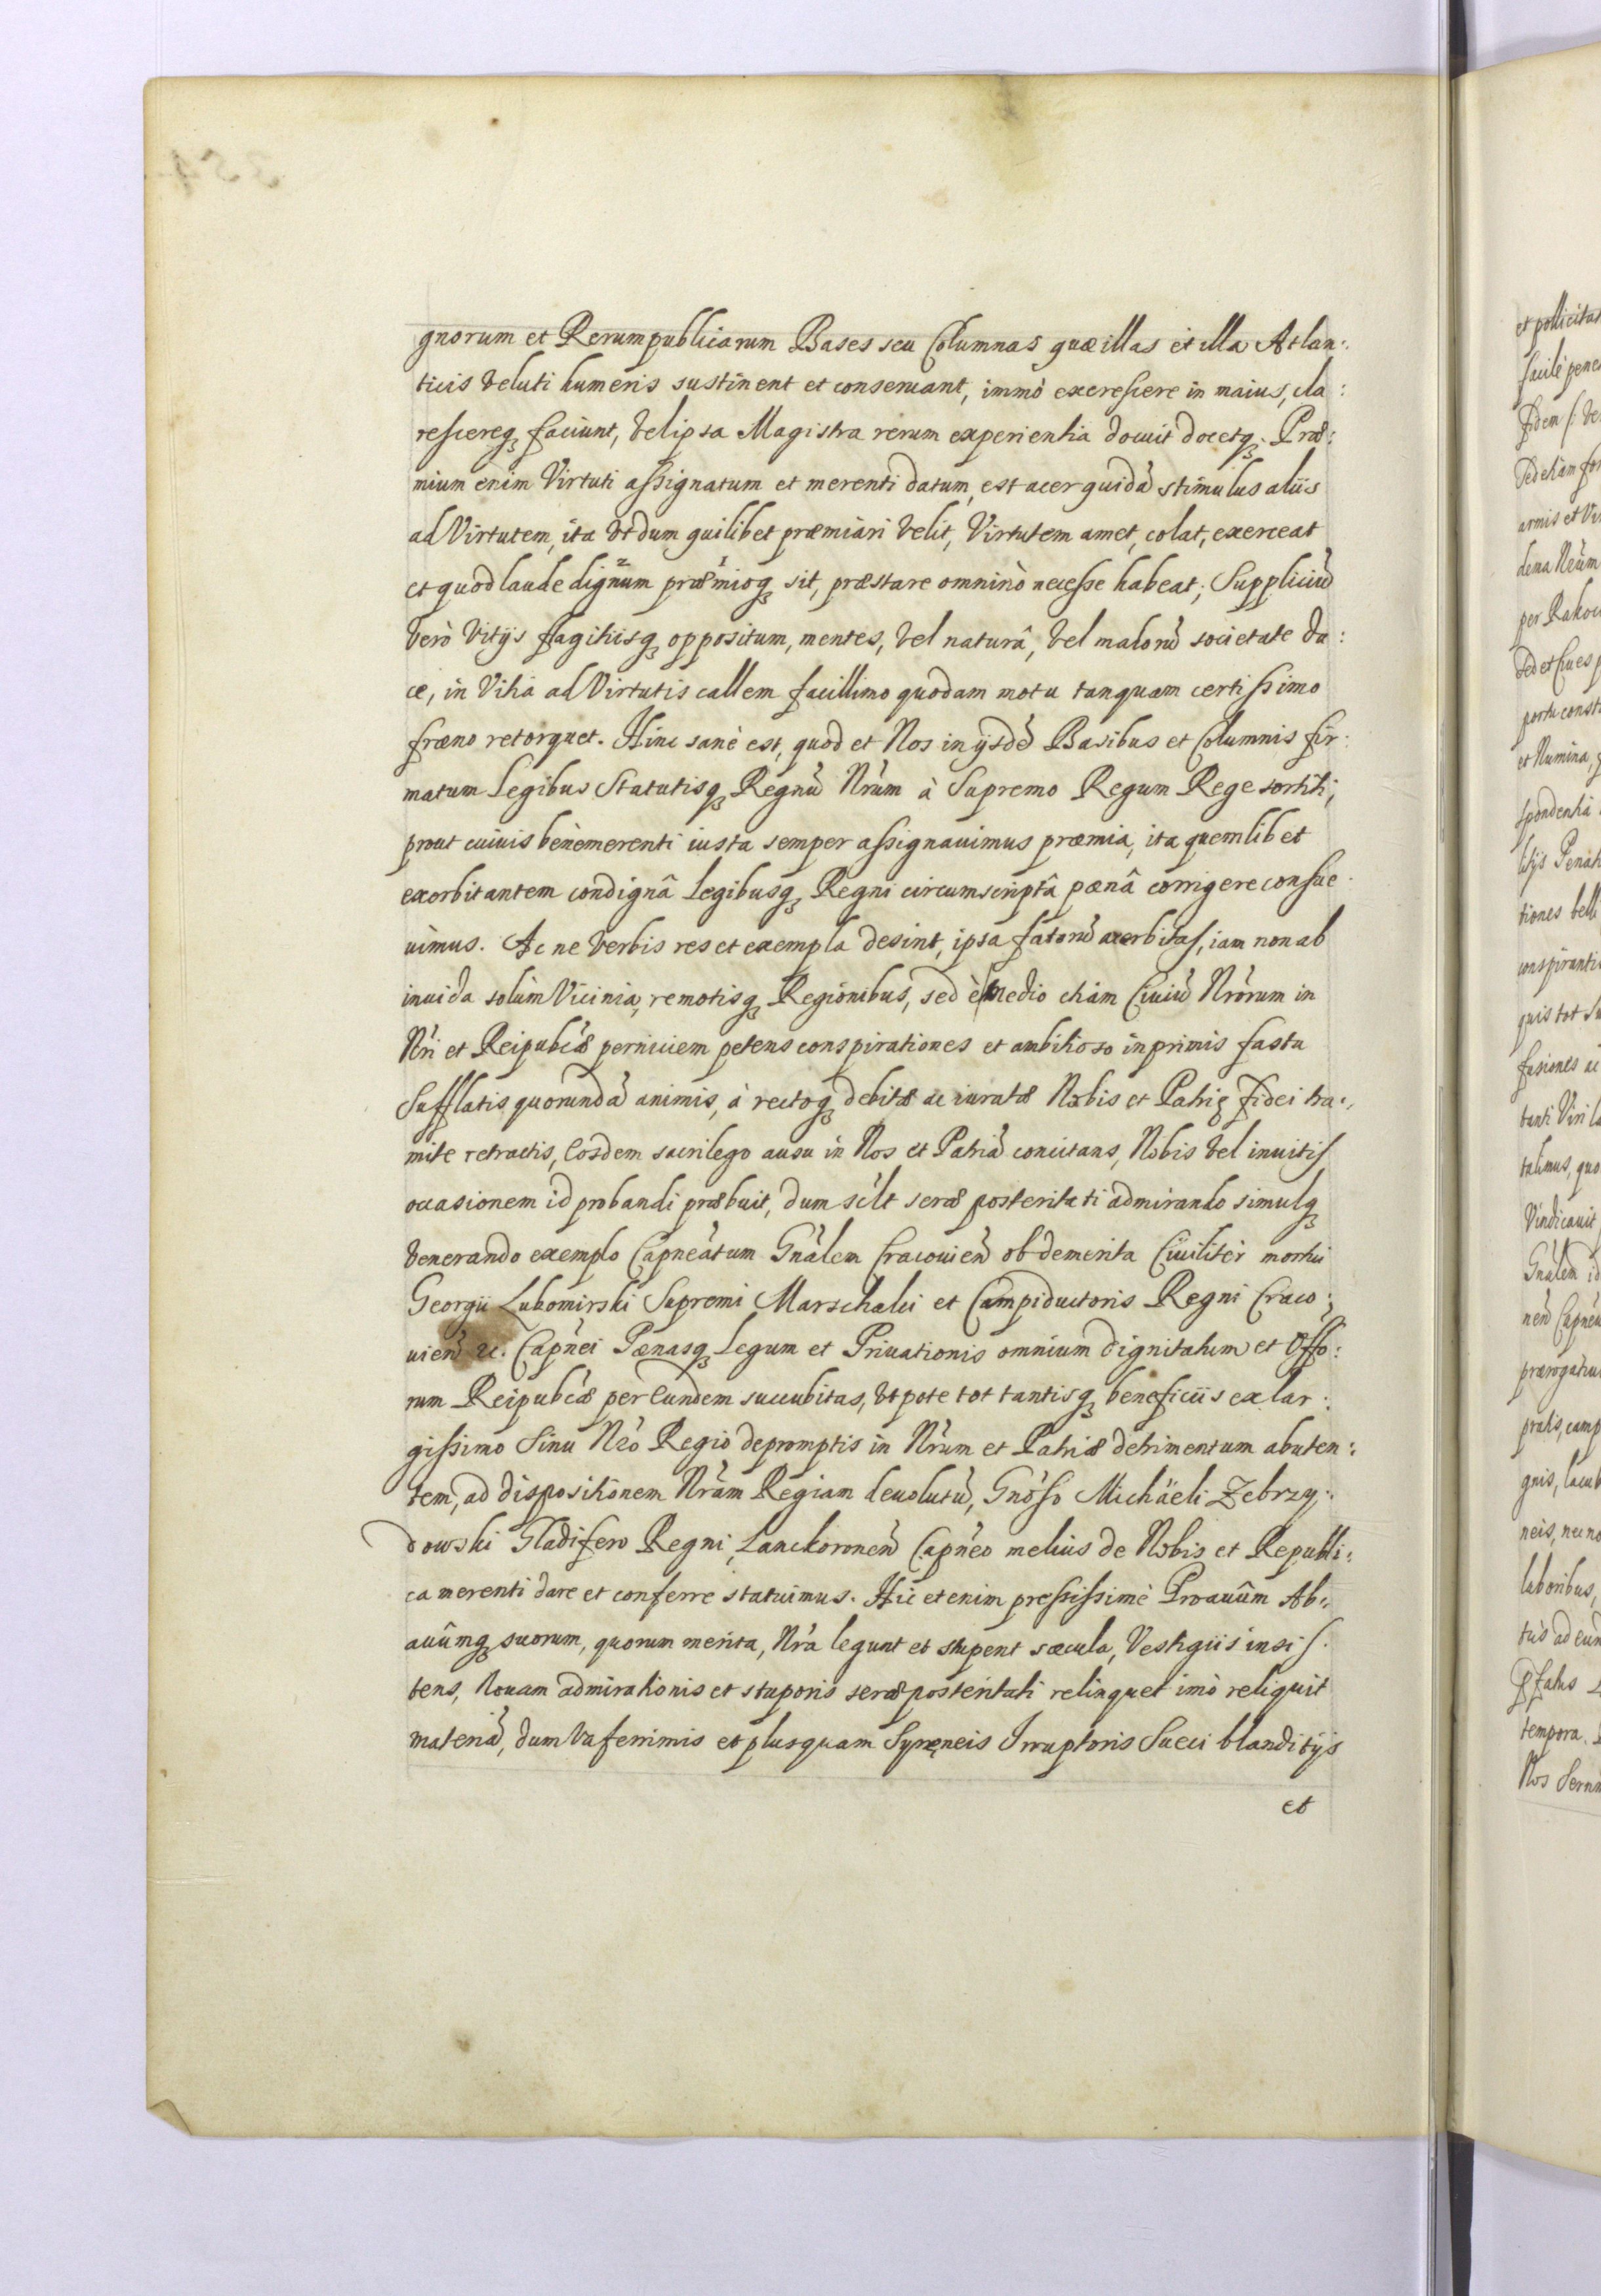 gnorum et Rerumpublicarum Bases seu Columnas quæ illas et illa Atlan:
ticis veluti humeris sustinent et conseruant, immò excrescere in maius, cla:
rescereq₃ faciunt, vel ipsa Magistra rerum experientia docuit docetq₃. Præ:
mium enim Virtuti assignatum et merenti datum, est acer quidã stimulus aliis
ad Virtutem, ita vt dum quilibet præmiari velit, Virtutem amet, colat, exerceat
et quod laude dignum præmioq₃ sit, præstare omninò necesse habeat; Suppliciũ
verò Vitijs flagitiisq₃ oppositum, mentes, vel naturâ, vel malorũ societate du:
ce, in Vitia ad Virtutis callem facillimo quodam motu tanquam certissimo
fræno retorquet. Hinc sanè est, quod et Nos in ijsdẽ Basibus et Columnis fir:
matum Legibus Statutisq₃ Regnũ Nr̃um à Supremo Regum Rege sortiti,
prout cuiuis benèmerenti iusta semper assignauimus præmia, ita quemlibet
exorbitantem condignâ Legibusq₃ Regni circumscriptâ pœnâ corrigere consue:
uimus. Ac ne verbis res et exempla desint, ipsa fatorũ acerbitas, iam non ab
inuida solùm Vicinia, remotisq₃ Regionibus, sed è Medio etiam Ciuiũ Nr̃orum in
Nr̃i et Reipubcæ perniciem petens conspirationes et ambitioso inprimis fastu
Sufflatis quorundã animis, à rectoq₃ debitæ ac iuratæ Nobis et Patrię fidei tra:
mite retractis, Eosdem sacrilego ausu in Nos et Patriã concitans, Nobis vel inuitis
occasionem id probandi præbuit, dum scilt seræ posteritati admirando simulq₃
venerando exemplo Capneatum Gnãlem Cracouieñ ob demerita Ciuilitèr mortui
Georgii Lubomirski Supremi Marschalci et Campiductoris Regni Craco:
uieñ &c. Capnei Pœnasq₃ Legum et Priuationis omnium dignitatum et Offo:
rum Reipubcæ per Eundem succubitas, vtpote tot tantisq₃ beneficiis ex lar:
gissimo Sinu Nr̃o Regio depromptis in Nr̃um et Patriæ detrimentum abuten:
tem, ad dispositionem Nr̃am Regiam deuolutũ, Gnõso Michäeli Zebrzy:
dowski Gladifero Regni, Lanckoroneñ Capneo melius de Nobis et Republi:
ca merenti dare et conferre statuimus. Hic etenim pressissimè Proauûm Ab:
auûmq₃ suorum, quorum merita, Nr̃a legunt et stupent sæcula, Vestigiis insis:
tens, Nouam admirationis et stuporis seræ posteritati relinquet imò reliquit
materiã, dum vaferrimis et plusquam Syręneis Irruptoris Sueci blanditijs
et